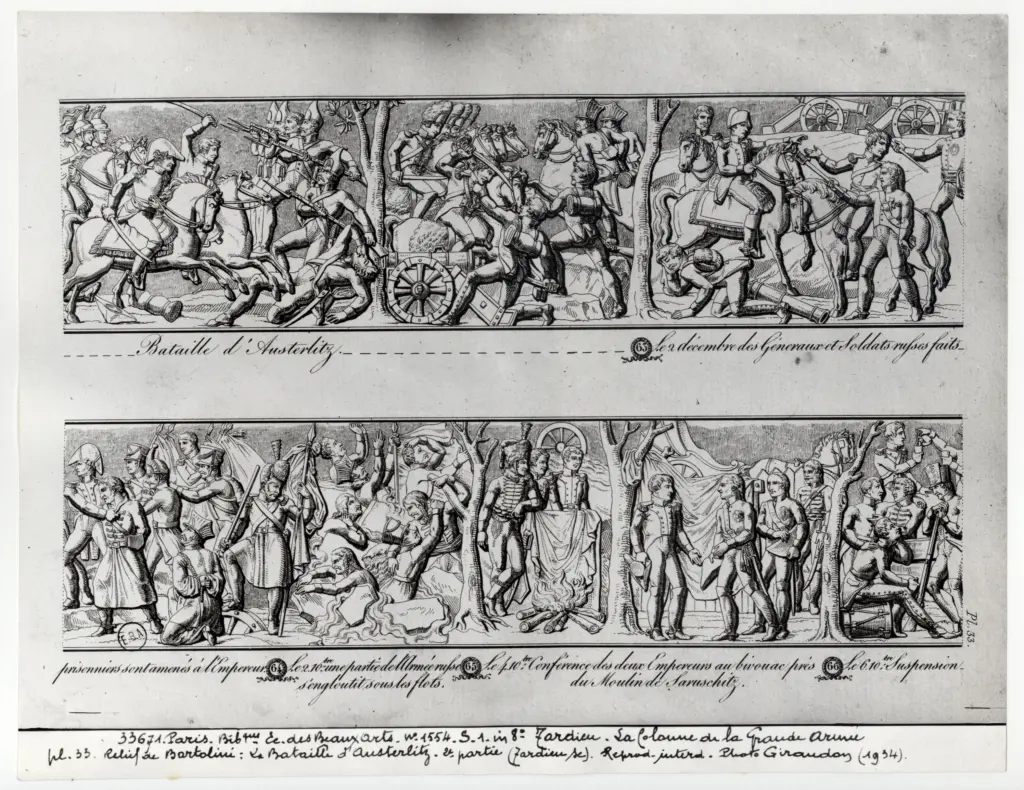 Bataille d'Austerlitz. 63 Le 2 décembre des Géneraux et Soldats russes faits
prisonniers sont amenés à l'Empereur. 64 Le 2. 10.bre une partie de l'Armée russe 65 Le 4. 10.bre Conférence des deux Empereurs au bivouac près 66 Le 6. 10.bre Suspension
s'engloutit sous les flots. du Moulin de Saruschitz.
Pl. 33.
33671. Paris. Bibque Ec. des Beaux Arts. No. 1554. S. 1. in 8o Tardieu. La Colonne de la Grande Armée
pl. 33. Relief de Bartolini: La Bataille d'Austerlitz. 2e partie (Tardieu sc). Reprod. interd. Photo Giraudon (1934).